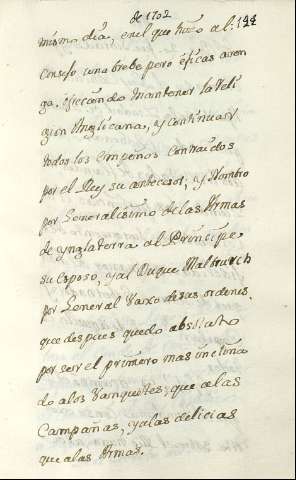 de 1702
144
mismo dia, en el que tuvo al
Consejo una brebe pero eficas aren
ga, ofreciendo mantener la Reli
gion Anglicana, y continuar
todos los empeños contraidos
por el Rey su antecesor, y Nombro
por Generalisimo de las Armas
de Ynglaterra al Principe
su Esposo, y al Duque Malburch
por General vaxo de sus ordenes,
que despues quedo absoluto
por ser el primero mas inclina
do a los vanquetes, que a las
Campañas, y a las delicias
que a las Armas.